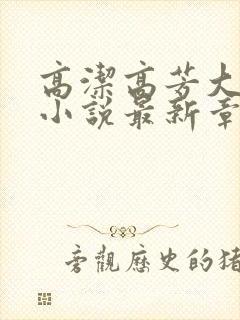 高潔高芳大
小說最新章
旁觀歷史的猪